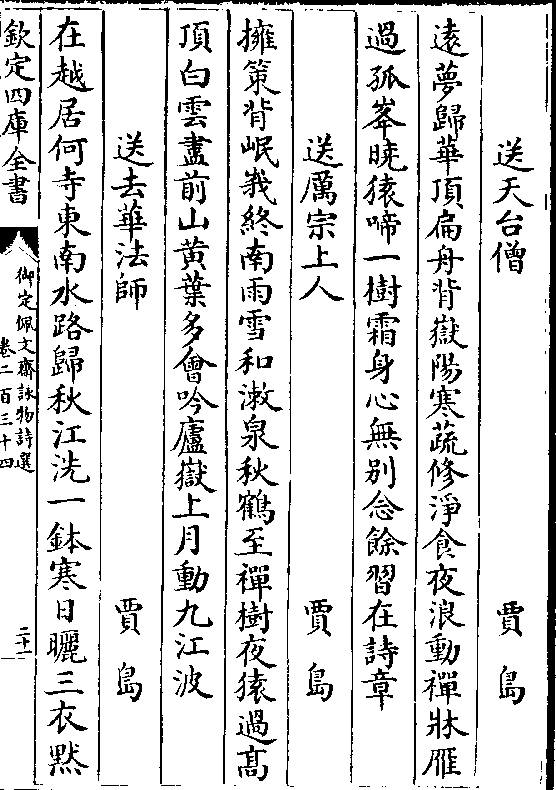 送天台僧 賈島
遠夢歸華頂扁舟背嶽陽寒蔬修淨食夜浪動禪牀雁
過孤峯曉猿啼一樹霜身心無别念餘習在詩章
送厲宗上人 賈島
擁策背岷峩終南雨雪和漱泉秋鶴至禪樹夜猿過高
頂白雲盡前山黄葉多曾吟廬嶽上月動九江波
送去華法師 賈島
在越居何寺東南水路歸秋江洗一鉢寒日曬三衣黙
欽定四庫全書
御定佩文齋詠物詩選
卷二百三十四
二十一